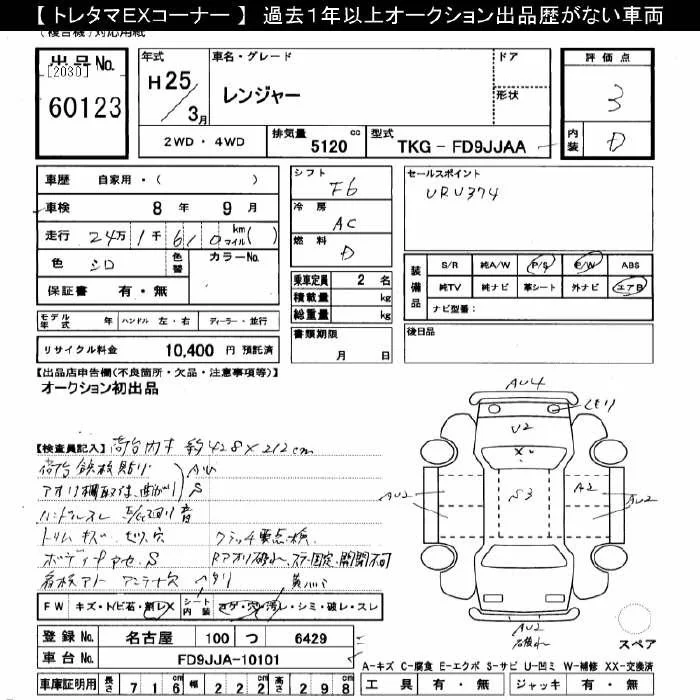 【 トレタマEXコーナー 】 過去１年以上オークション出品歴がない車両
(複合機)対応用紙
出品No.
[2030]
60123
年式
H25
3月
車名・グレード
レンジャー
ドア
形状
2WD ・ 4WD
排気量 5120 cc
型式 TKG - FD9JJAA
評価点
3
内装 D
車歴 自家用・( )
車検 8 年 9 月
走行 24万1千610 km マイル( )
色 シロ 色替 カラーNo.
保証書 有・無
モデル年式 年 ハンドル 左・右 ディーラー・並行
リサイクル料金 10,400 円 預託済
シフト F6
冷房 AC
燃料 D
乗車定員 2 名
積載量 kg
総重量 kg
書類期限
月 日
セールスポイント
URU374
装備品
S/R 純A/W P/S P/W ABS
純TV 純ナビ 革シート 外ナビ エアB
ナビ型番:
後日品
【出品店申告欄(不良箇所・欠品・注意事項等)】
オークション初出品
【検査員記入】 荷台内寸 約428×212cm
荷台鉄板貼り AU
アオリ欄取付、曲がり S
ハンドルスレ E/G廻り音
トリム キズ・ビス穴 クラッチ要点検
ボディ色アセ、S Rアオリ破れ、ステー固定、開閉不可
看板アト アンテナ穴 ヘタリ
FW キズ・トビ石・割レX シート内装 コゲ・穴・汚レ・シミ・破レ・スレ
登録 No. 名古屋 100 つ 6429
車台 No. FD9JJA-10101
車庫証明用 長さ 716 幅 222 高さ 298
AU4
U2
S3
A2
AU2
AU2
AU2
スペア
A-キズ C-腐食 E-エクボ S-サビ U-凹ミ W-補修 XX-交換済
工具 有・無 ジャッキ 有・無